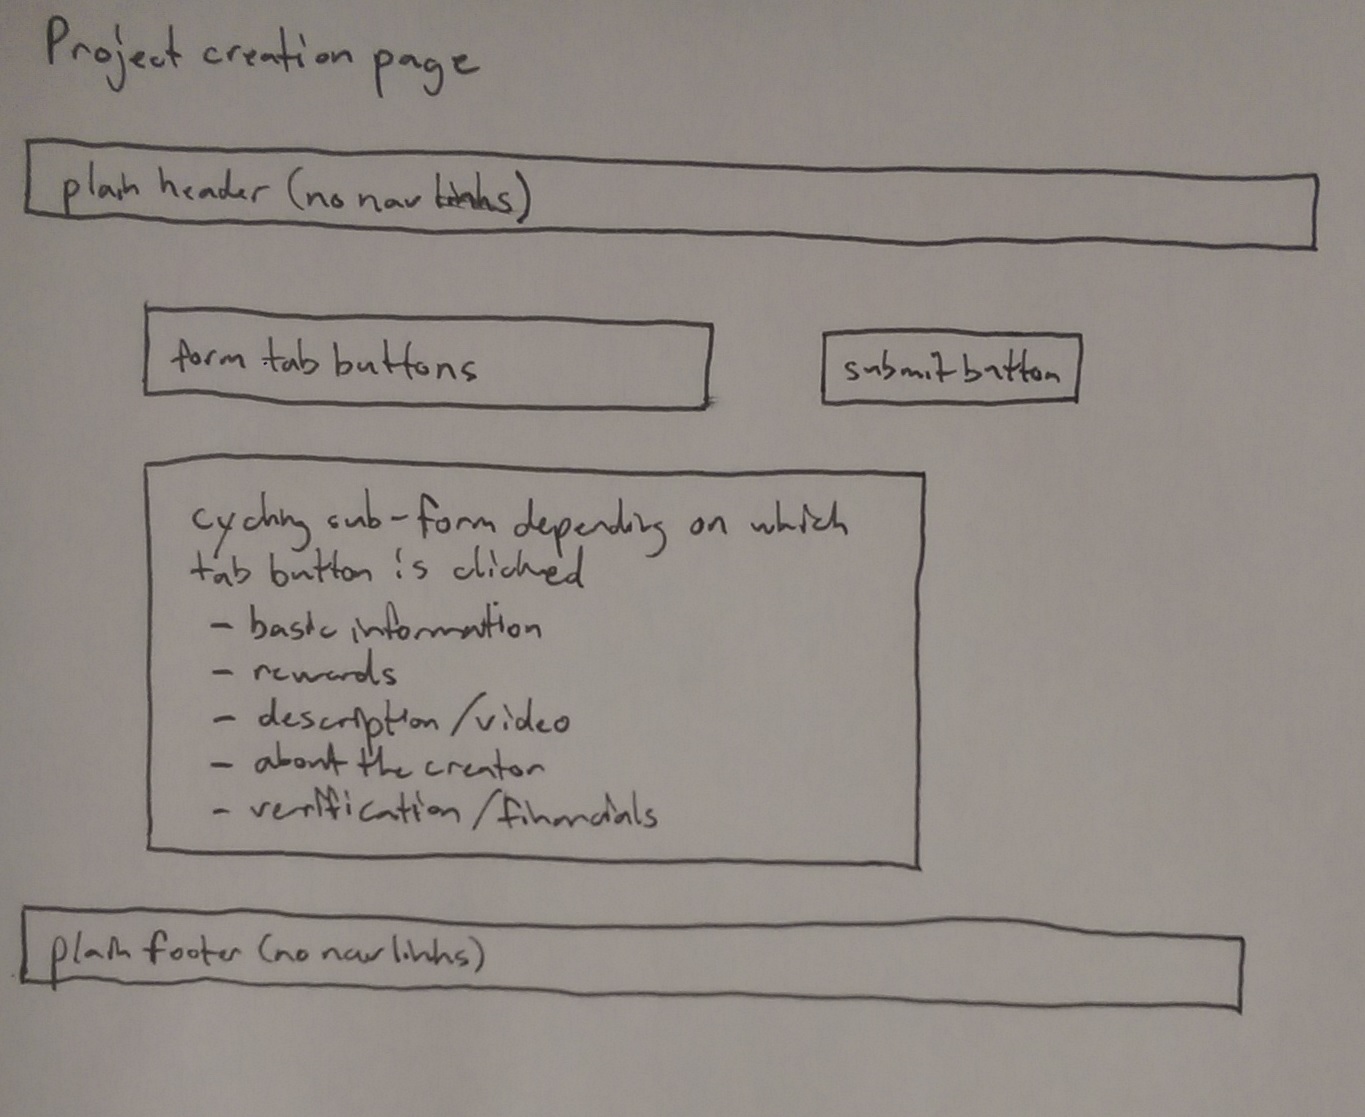 Project creation page
plain header (no nav links)
form tab buttons
submit button
cycling sub-form depending on which
tab button is clicked
- basic information
- rewards
- description/video
- about the creator
- verification/financials
plain footer (no nav links)